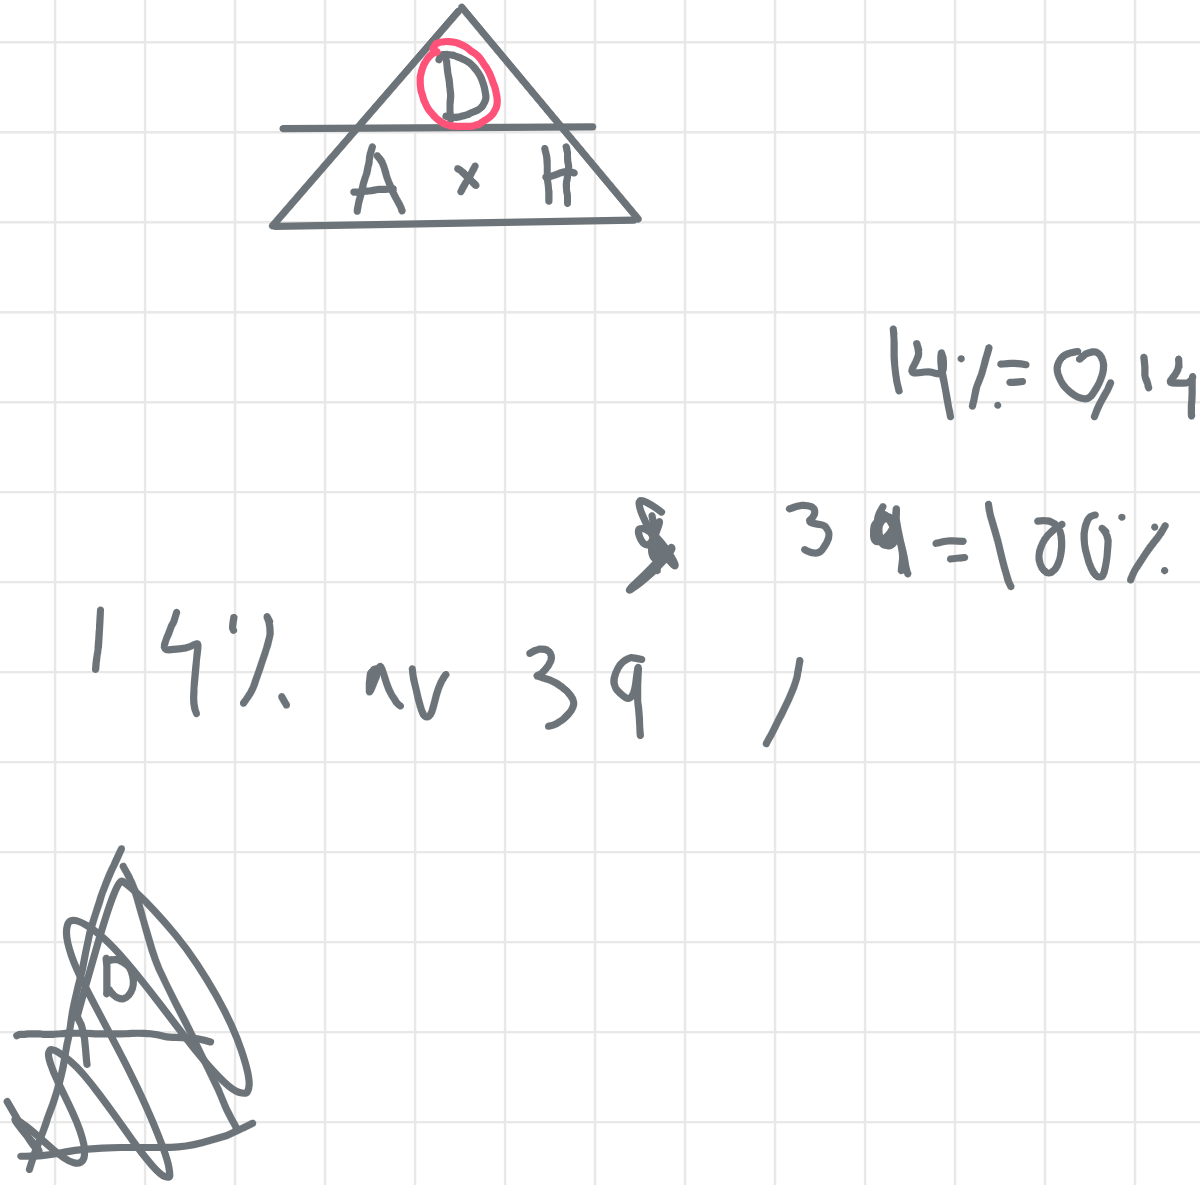 D
A x H
14%=0,14
39=100%
14% av 39
D